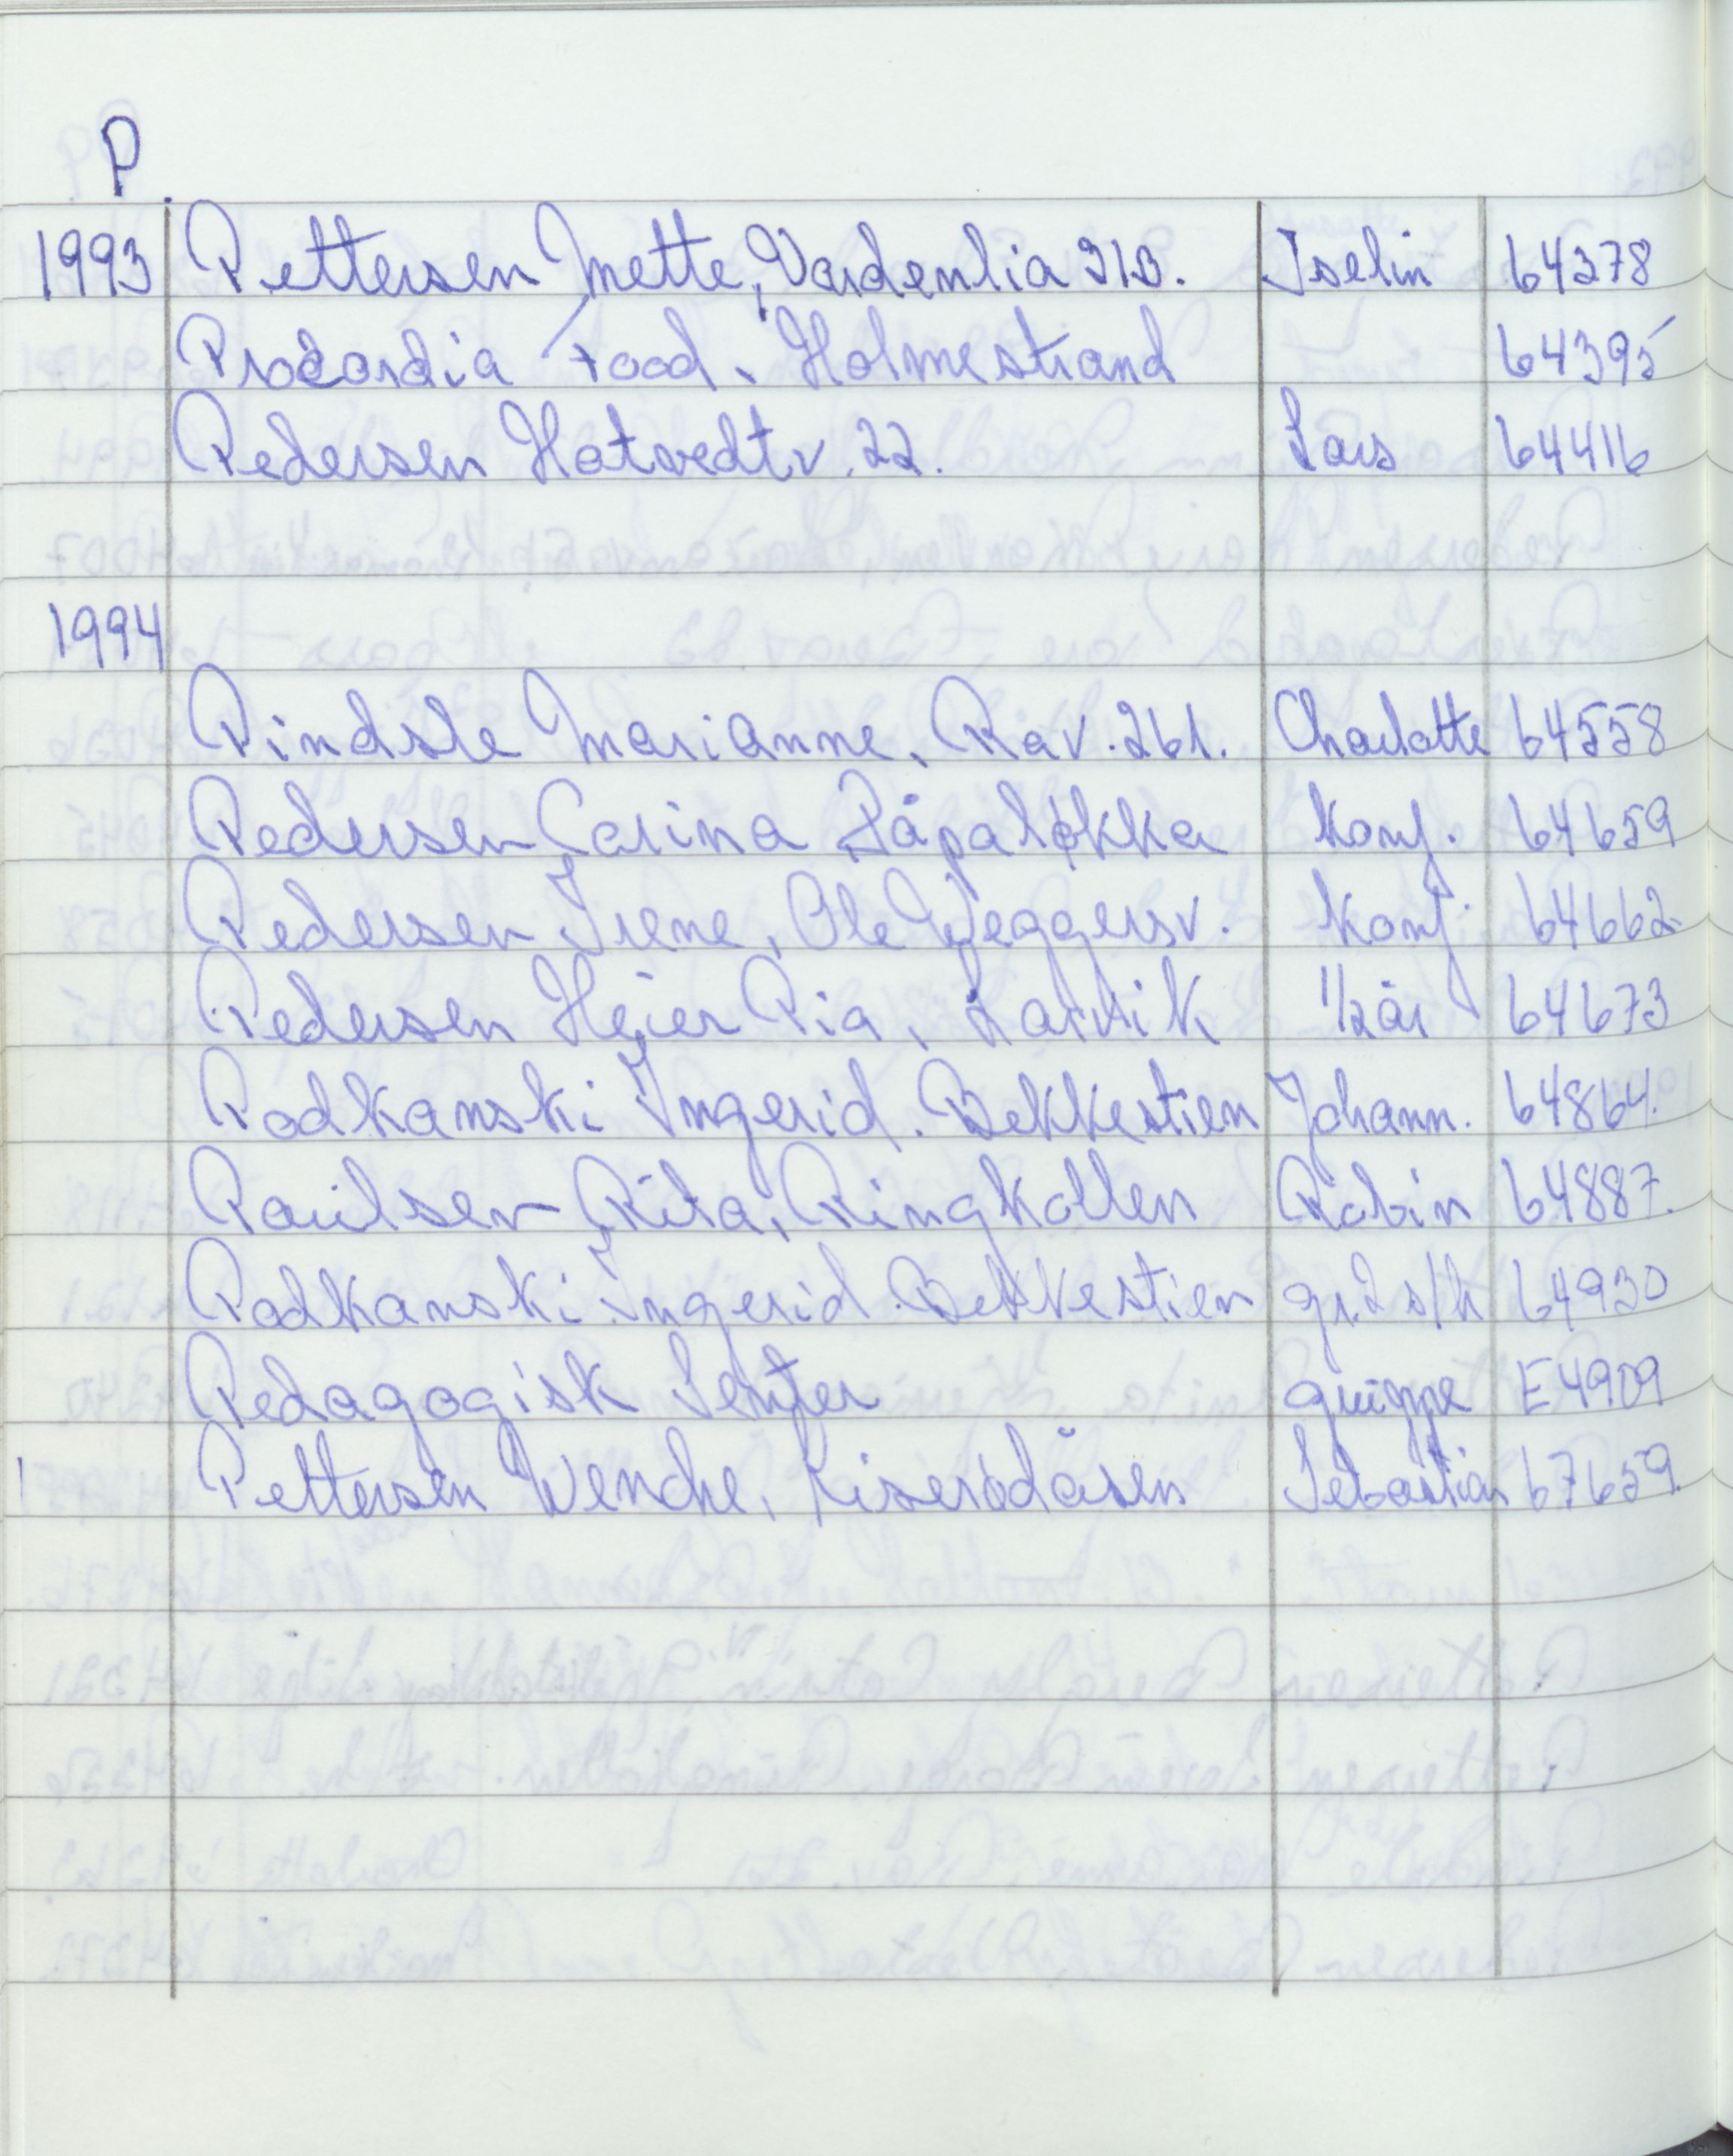 P
1993 Pettersen Mette, Vardenlia 21B. Iselin 64378
Procordia Food, Holmestrand 64395
Pedersen Hotvedtv. 22. Lars 64416
1994
Pindsle Marianne, Rav. 261. Charlotte 64558
Pedersen Carina Råpaløkka Konf. 64659
Pedersen Irene, Ole Weggersv. Konf. 64662
Pedersen Heier Pia, Larvik 1/2 år 64673
Podkanski Ingerid. Bekkestien Johann. 64864.
Paulsen Rita, Ringkollen Robin 64887.
Podkanski Ingerid. Bekkestien gr.2 s/h 64930
Pedagogisk Senter gruppe E4909
Pettersen Wenche, Kiserødåsen Sebastian 67659.